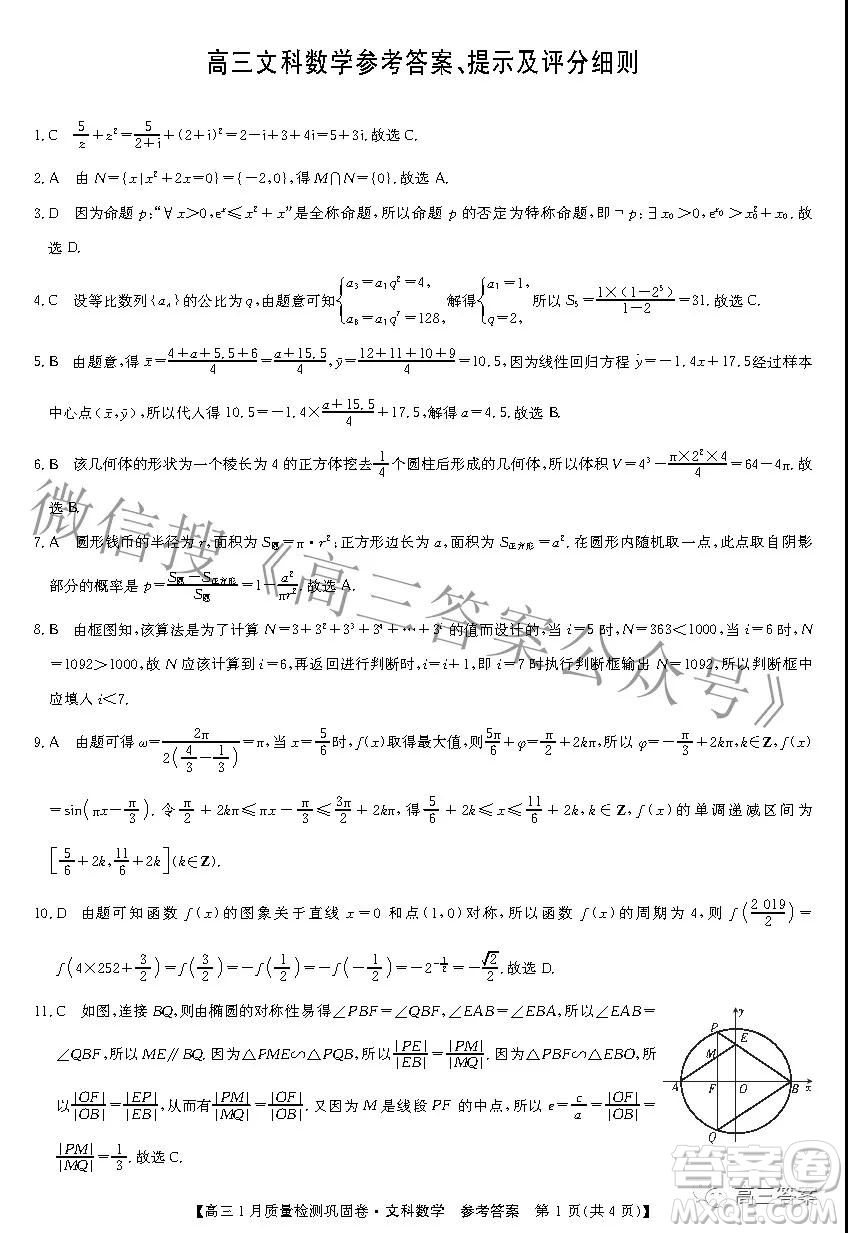 高三文科数学参考答案、提示及评分细则
1.C　5/z+z²=5/(2+i)+(2+i)²=2-i+3+4i=5+3i.故选C.
2.A　由 N={x|x²+2x=0}={-2,0},得 M∩N={0}.故选 A.
3.D　因为命题 p:“∀x>0,eˣ≤x²+x”是全称命题,所以命题 p 的否定为特称命题,即¬p:∃x₀>0,e^{x₀}>x₀²+x₀.故
选 D.
4.C　设等比数列{aₙ}的公比为 q,由题意可知{a₃=a₁q²=4, a₈=a₁q⁷=128, 解得{a₁=1, q=2, 所以 S₅=1×(1-2⁵)/(1-2)=31.故选 C.
5.B　由题意,得 x̄=(4+a+5.5+6)/4=(a+15.5)/4,ȳ=(12+11+10+9)/4=10.5,因为线性回归方程 ŷ=-1.4x+17.5经过样本
中心点(x̄,ȳ),所以代人得 10.5=-1.4×(a+15.5)/4+17.5,解得 a=4.5.故选 B.
6.B　该几何体的形状为一个棱长为 4 的正方体挖去 1/4 个圆柱后形成的几何体,所以体积 V=4³-(π×2²×4)/4=64-4π.故
选 B.
7.A　圆形钱币的半径为 r,面积为 S圆=π·r²;正方形边长为 a,面积为 S正方形=a².在圆形内随机取一点,此点取自阴影
部分的概率是 p=(S圆-S正方形)/S圆=1-a²/(πr²).故选 A.
8.B　由框图知,该算法是为了计算 N=3+3²+3³+3⁴+⋯+3ⁱ 的值而设计的,当 i=5 时,N=363<1000,当 i=6 时,N
=1092>1000,故 N 应该计算到 i=6,再返回进行判断时,i=i+1,即 i=7 时执行判断框输出 N=1092,所以判断框中
应填人 i<7.
9.A　由题可得 ω=2π/(2(4/3-1/3))=π,当 x=5/6时,f(x)取得最大值,则5π/6+φ=π/2+2kπ,所以 φ=-π/3+2kπ,k∈Z,f(x)
=sin(πx-π/3).令 π/2+2kπ≤πx-π/3≤3π/2+2kπ,得 5/6+2k≤x≤11/6+2k,k∈Z,f(x)的单调递减区间为
[5/6+2k,11/6+2k](k∈Z).
10.D　由题可知函数 f(x)的图象关于直线 x=0 和点(1,0)对称,所以函数 f(x)的周期为 4,则 f(2 019/2)=
f(4×252+3/2)=f(3/2)=-f(1/2)=-f(1/2)=-2^{-1/2}=-√2/2.故选 D.
11.C　如图,连接 BQ,则由椭圆的对称性易得∠PBF=∠QBF,∠EAB=∠EBA,所以∠EAB=
∠QBF,所以 ME∥BQ.因为△PME∽△PQB,所以|PE|/|EB|=|PM|/|MQ|.因为△PBF∽△EBO,所
以|OF|/|OB|=|EP|/|EB|,从而有|PM|/|MQ|=|OF|/|OB|.又因为 M 是线段 PF 的中点,所以 e=c/a=|OF|/|OB|=
|PM|/|MQ|=1/3.故选 C.
y
P
E
M
A
F
O
B
x
Q
【高三1月质量检测巩固卷·文科数学　参考答案　第 1 页(共 4 页)】
微信搜《高三答案公众号》
答案卷
高三答案